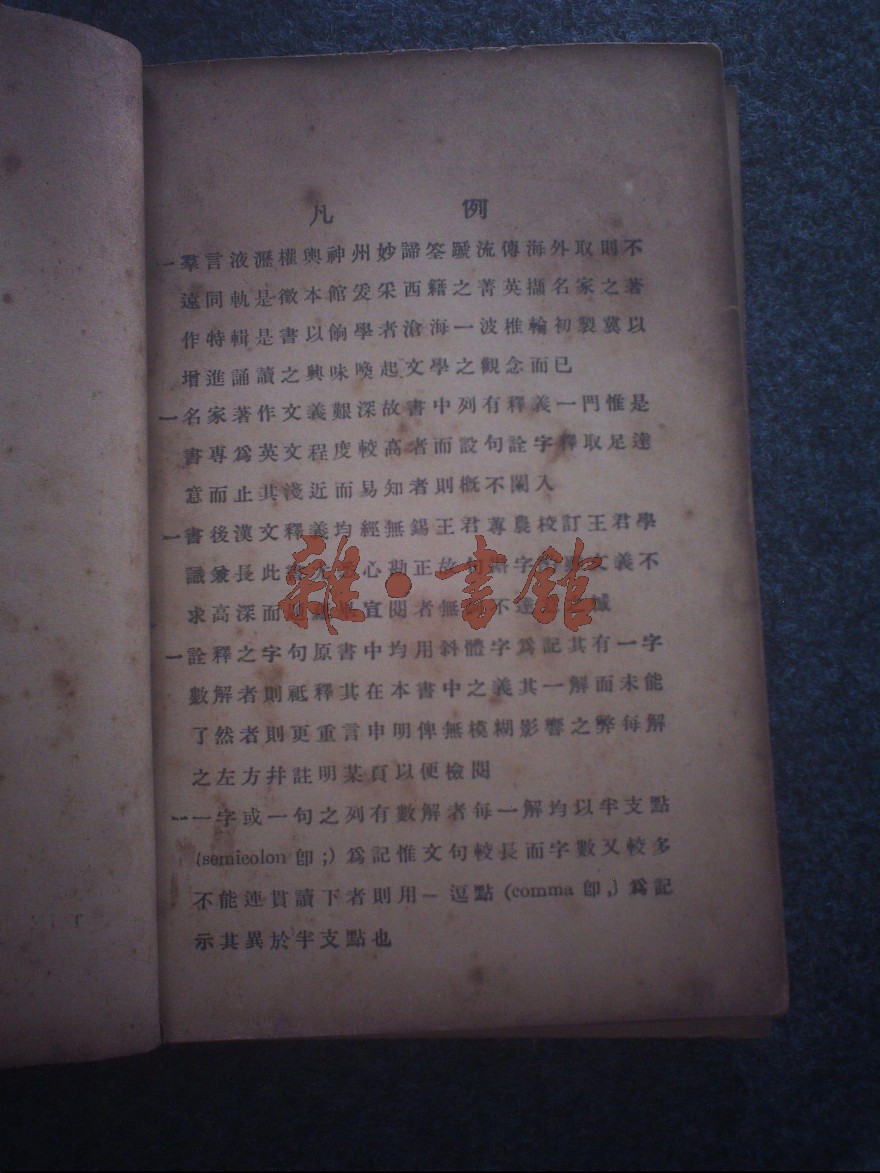 凡例
一羣言液瀝權輿神州妙諦筌蹏流傳海外取則不
遠同軌是徵本館爰采西籍之菁英擷名家之著
作特輯是書以餉學者滄海一波椎輪初製冀以
增進誦讀之興味喚起文學之觀念而已
一名家著作文義艱深故書中列有釋義一門惟是
書專爲英文程度較高者而設句詮字釋取足達
意而止其淺近而易知者則槪不闌入
一書後漢文釋義均經無錫王君蓴農校訂王君學
識兼長此心勘正故文義不
求高深而宜閱者無不達
一詮釋之字句原書中均用斜體字爲記其有一字
數解者則祗釋其在本書中之義其一解而未能
了然者則更重言申明俾無模糊影響之弊每解
之左方幷註明某頁以便檢閱
一一字或一句之列有數解者每一解均以半支點
(semicolon 卽 ;) 爲記惟文句較長而字數又較多
不能連貫讀下者則用一逗點 (comma 卽 ,) 爲記
示其異於半支點也
雜·書館